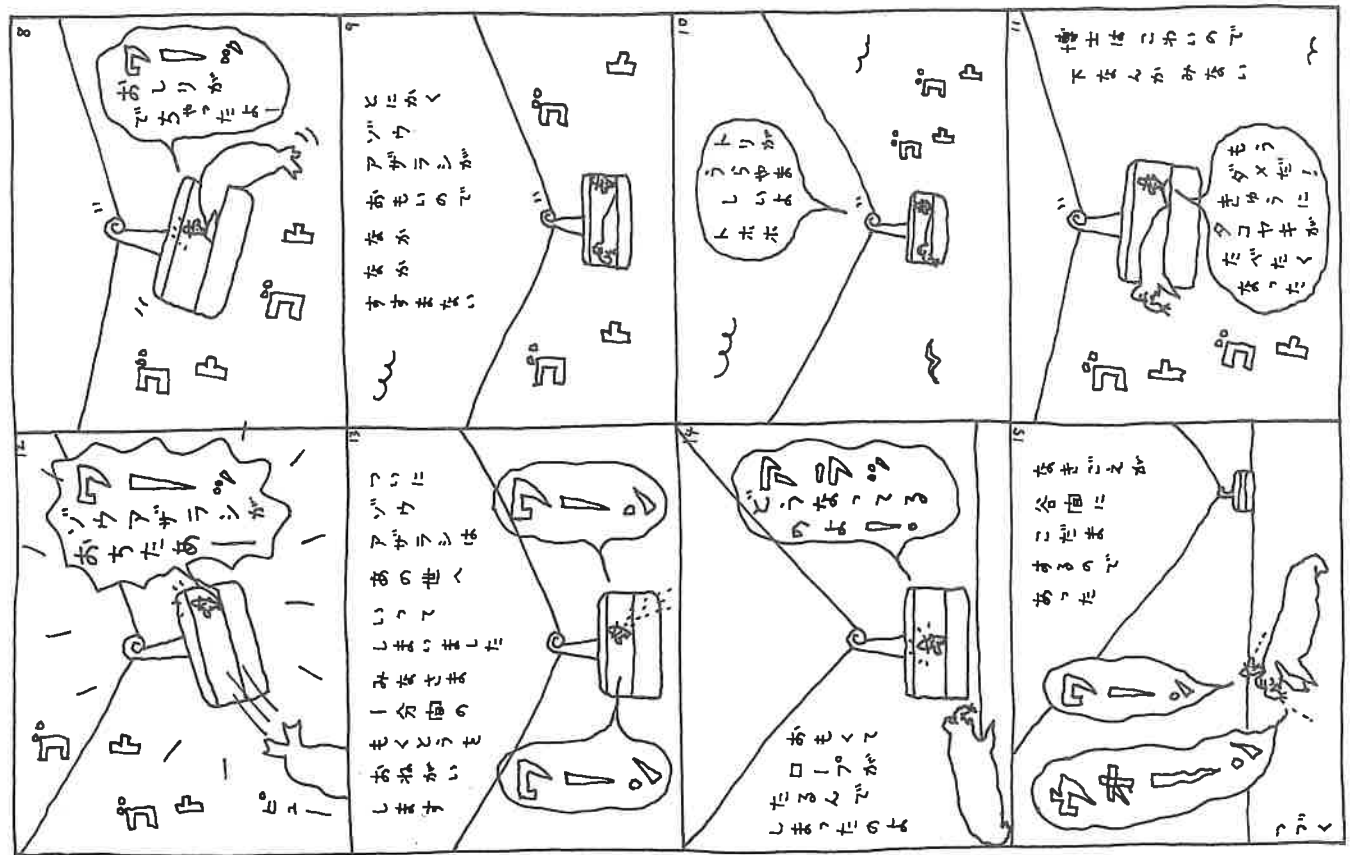 8
ワー!!
おしりが
でちゃったよー!
ゴト
ゴト
9
とにかく
ゾウ
アザラシが
おもいので
なか
なか
すすまない
ゴト
ゴト
10
トリが
うらやま
しいよ
トホホ
ゴト
ゴト
11
博士はこわいので
下なんかみない
もう
ダメだ!
きゅうに
タコヤキが
たべたく
なった
ゴト
ゴト
12
ワー!!
ゾウアザラシが
おちたあー
ゴト
ゴト
ピュー
13
ついに
ゾウ
アザラシは
あの世へ
いって
しまいました
みなさま
1分間の
もくとうを
おねがい
します
ワー!
ワー!
14
アラ!!
どうなってる
のよー!
おもくて
ロープが
たるんで
しまったのよ
15
なきごえが
谷間に
こだま
するので
あった
ワー!
つづく